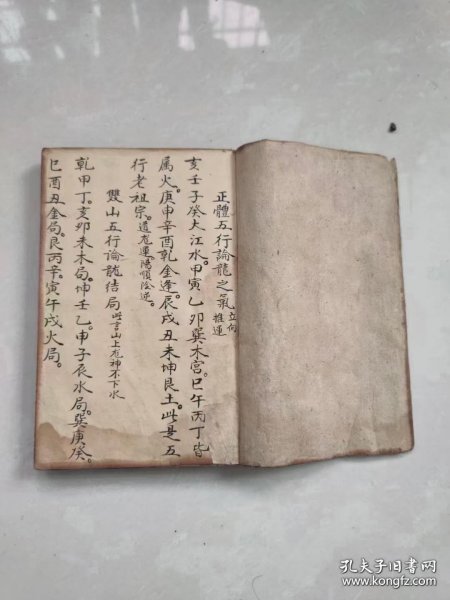 正體五行論龍之氣 立向推運
亥壬子癸大江水。甲寅乙卯巽木宮。巳午丙丁皆
属火。庚申辛酉乾金逢。辰戌丑未坤艮土。此是五
行老祖宗。遁龙運陽順陰逆。
雙山五行論龍結局 此言山上龙神不下水
乾甲丁。亥卯未木局。坤壬乙。申子辰水局。巽庚癸。
巳酉丑金局。艮丙辛。寅午戌火局。
孔夫子旧书网
www.kongfz.com